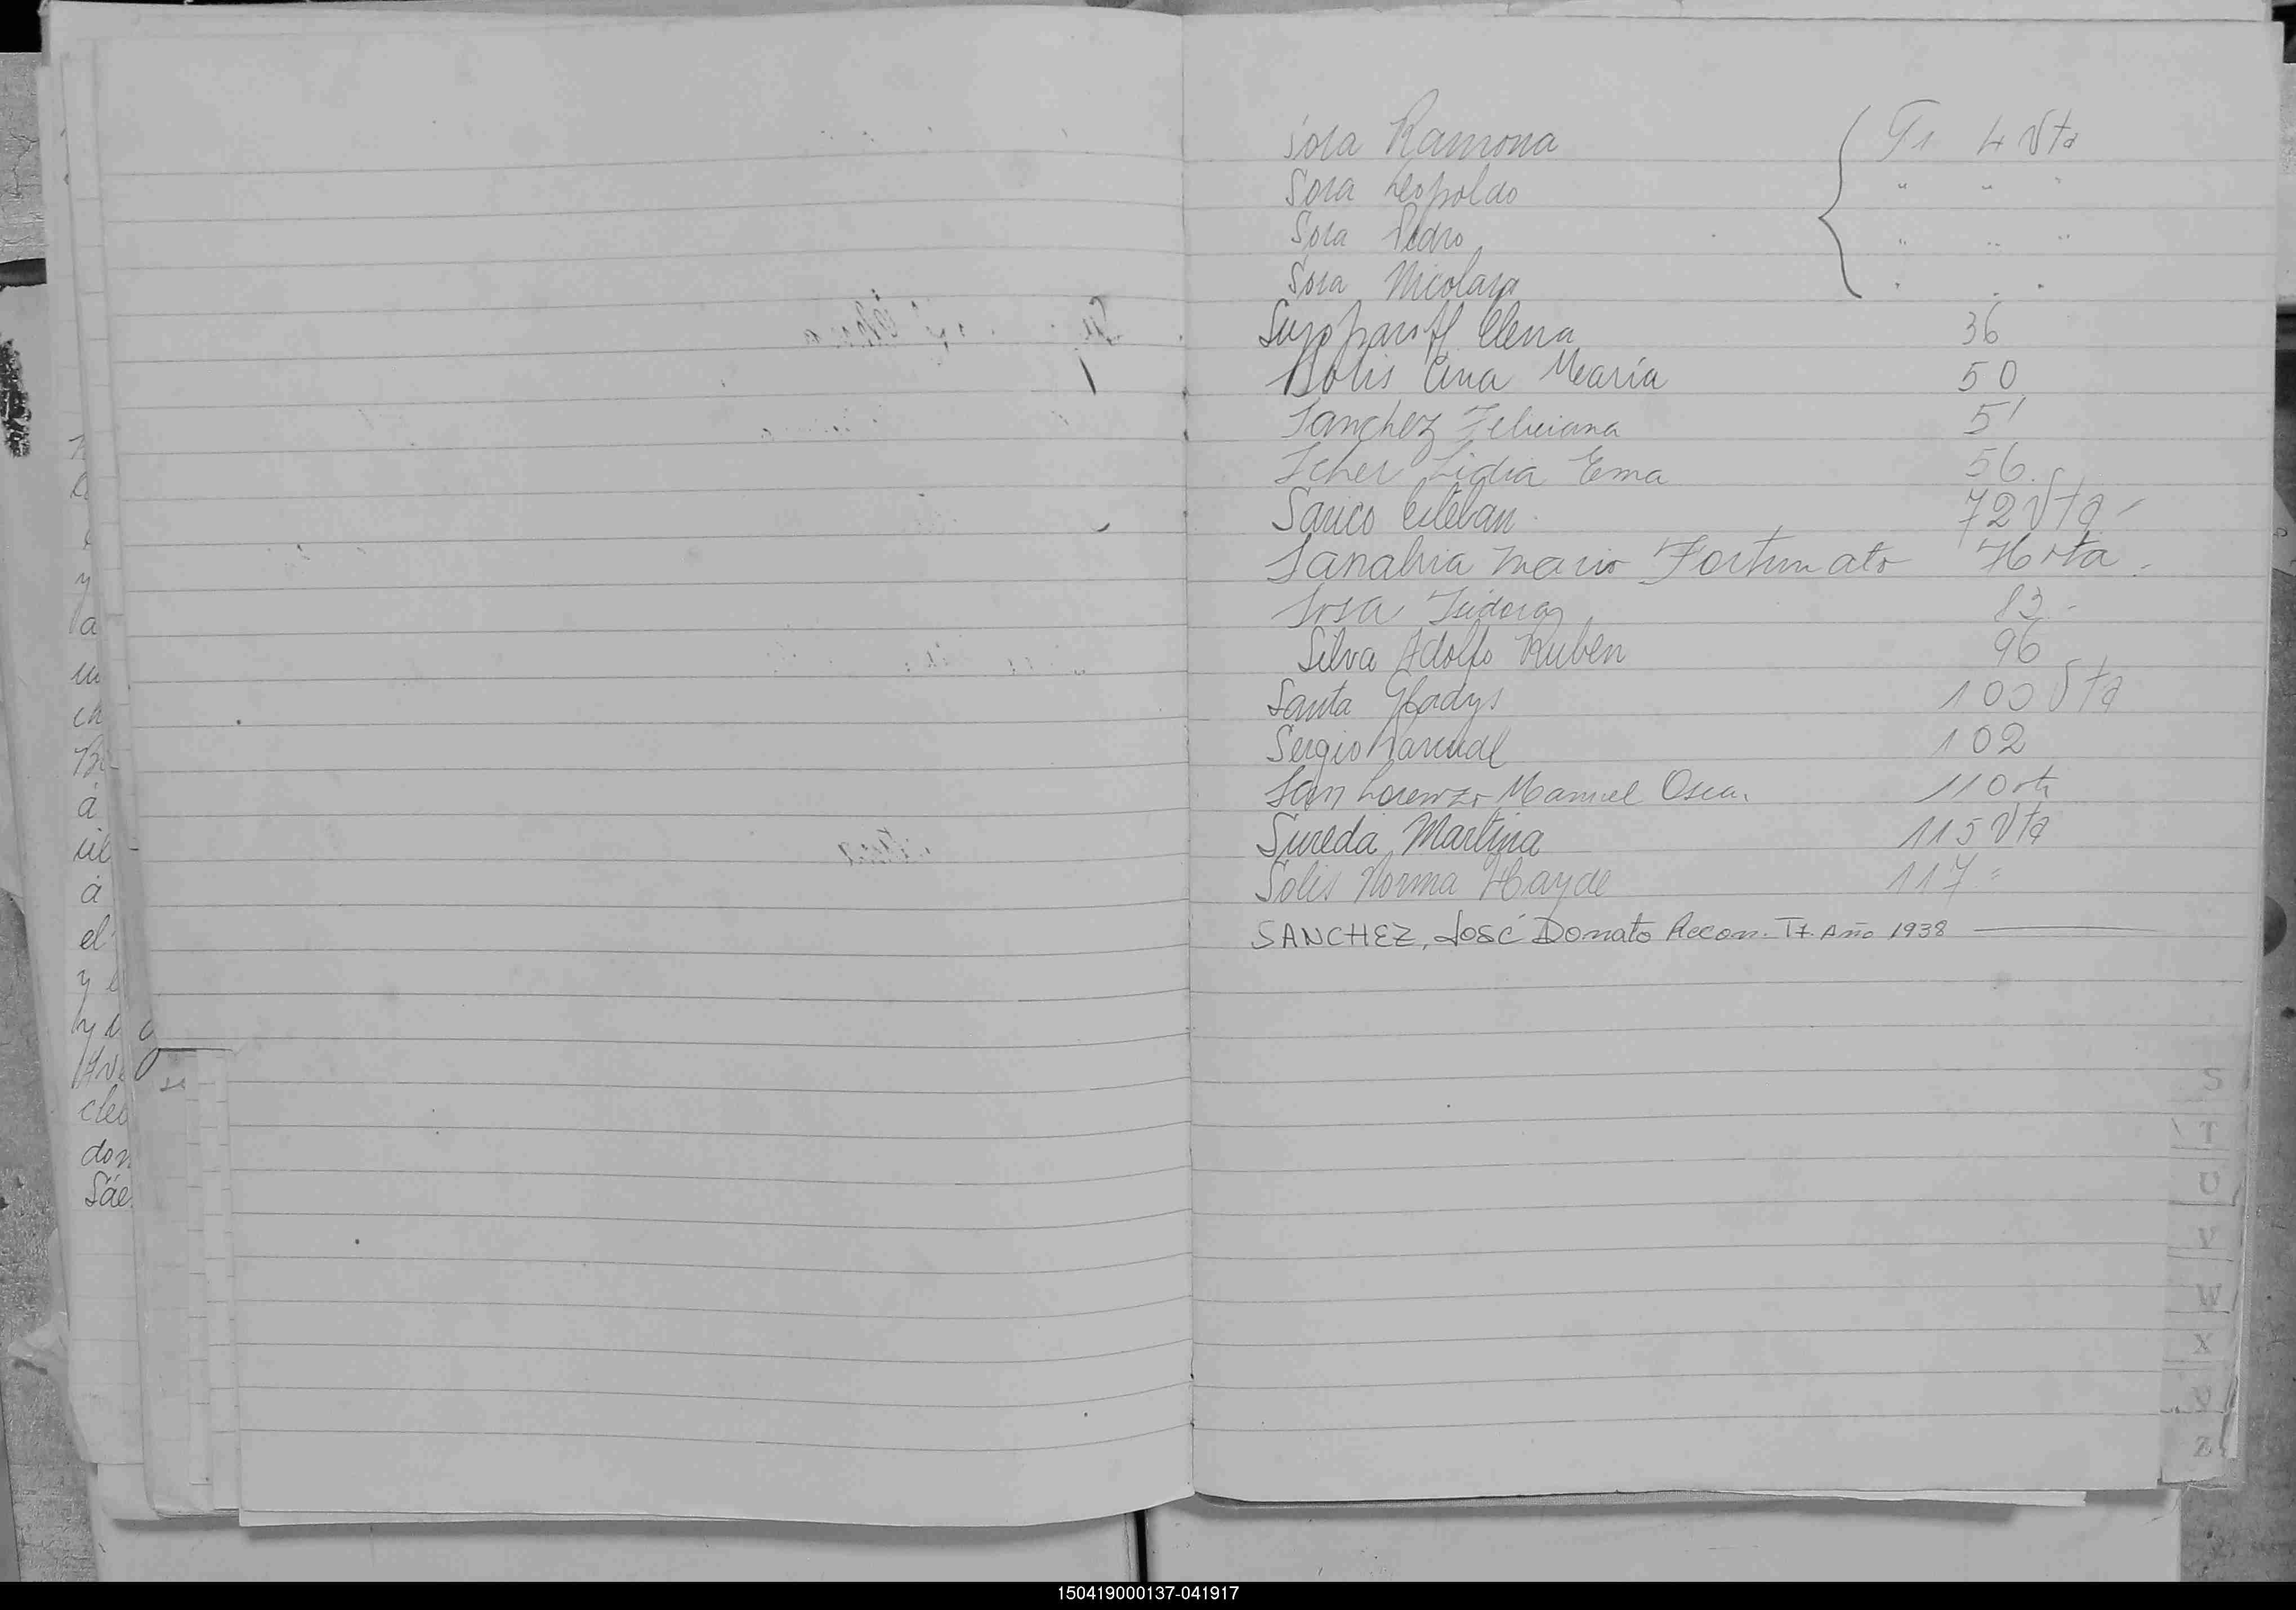 Sosa Ramona T1 4 Vta
Sosa Leopoldo " " "
Sosa Pedro " " "
Sosa Nicolasa " " "
Elena 36
Solis Ana María 50
Sanchez Feliciana 51
Scher Lidia Ema 56.
Sarico Esteban 72 Vta -
Sanabria Mario Fortunato vta.
Sosa Isidora 83 -
Silva Adolfo Ruben 96
Santa Gladys 100 Vta
Sergio Manual 102
San Lorenzo Manuel Oscar 110 vta
Sureda Martina 115 Vta
Solis Norma Hayde 117 "
SANCHEZ, José Donato Recon. T7. Año 1938
S
T
U
V
W
X
Y
Z
150419000137-041917